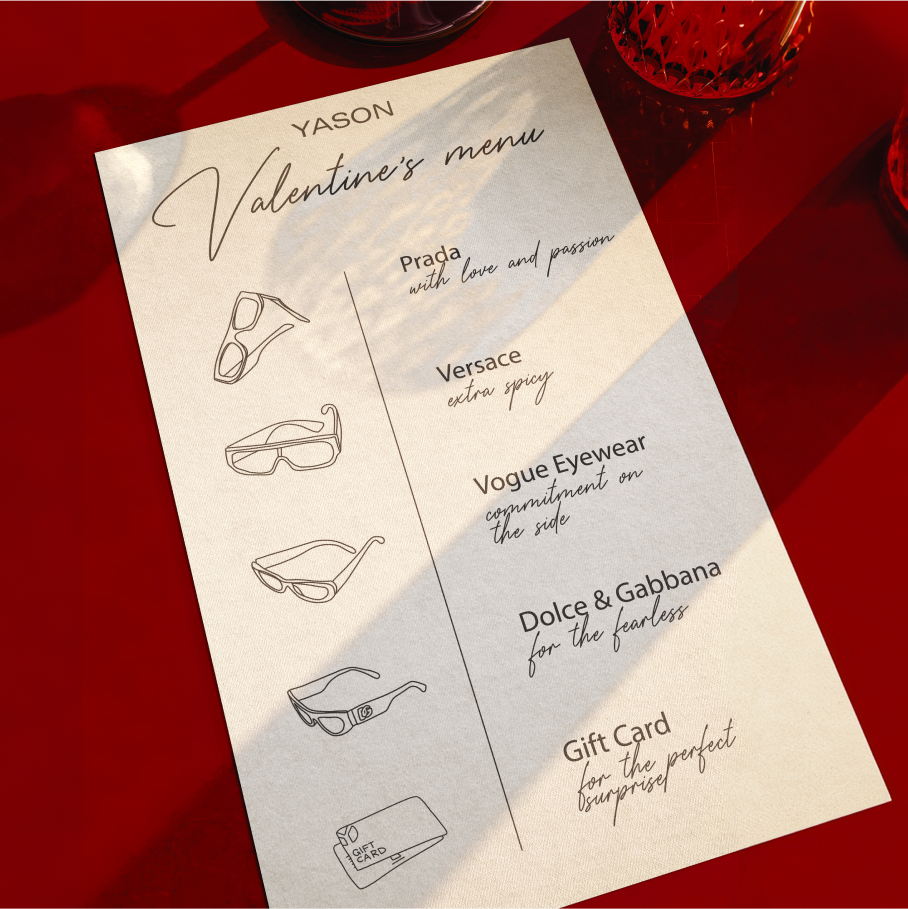 YASON
Valentine's menu
Prada
with love and passion
Versace
extra spicy
Vogue Eyewear
commitment on
the side
Dolce & Gabbana
for the fearless
Gift Card
for the perfect
surprise
GIFT
CARD